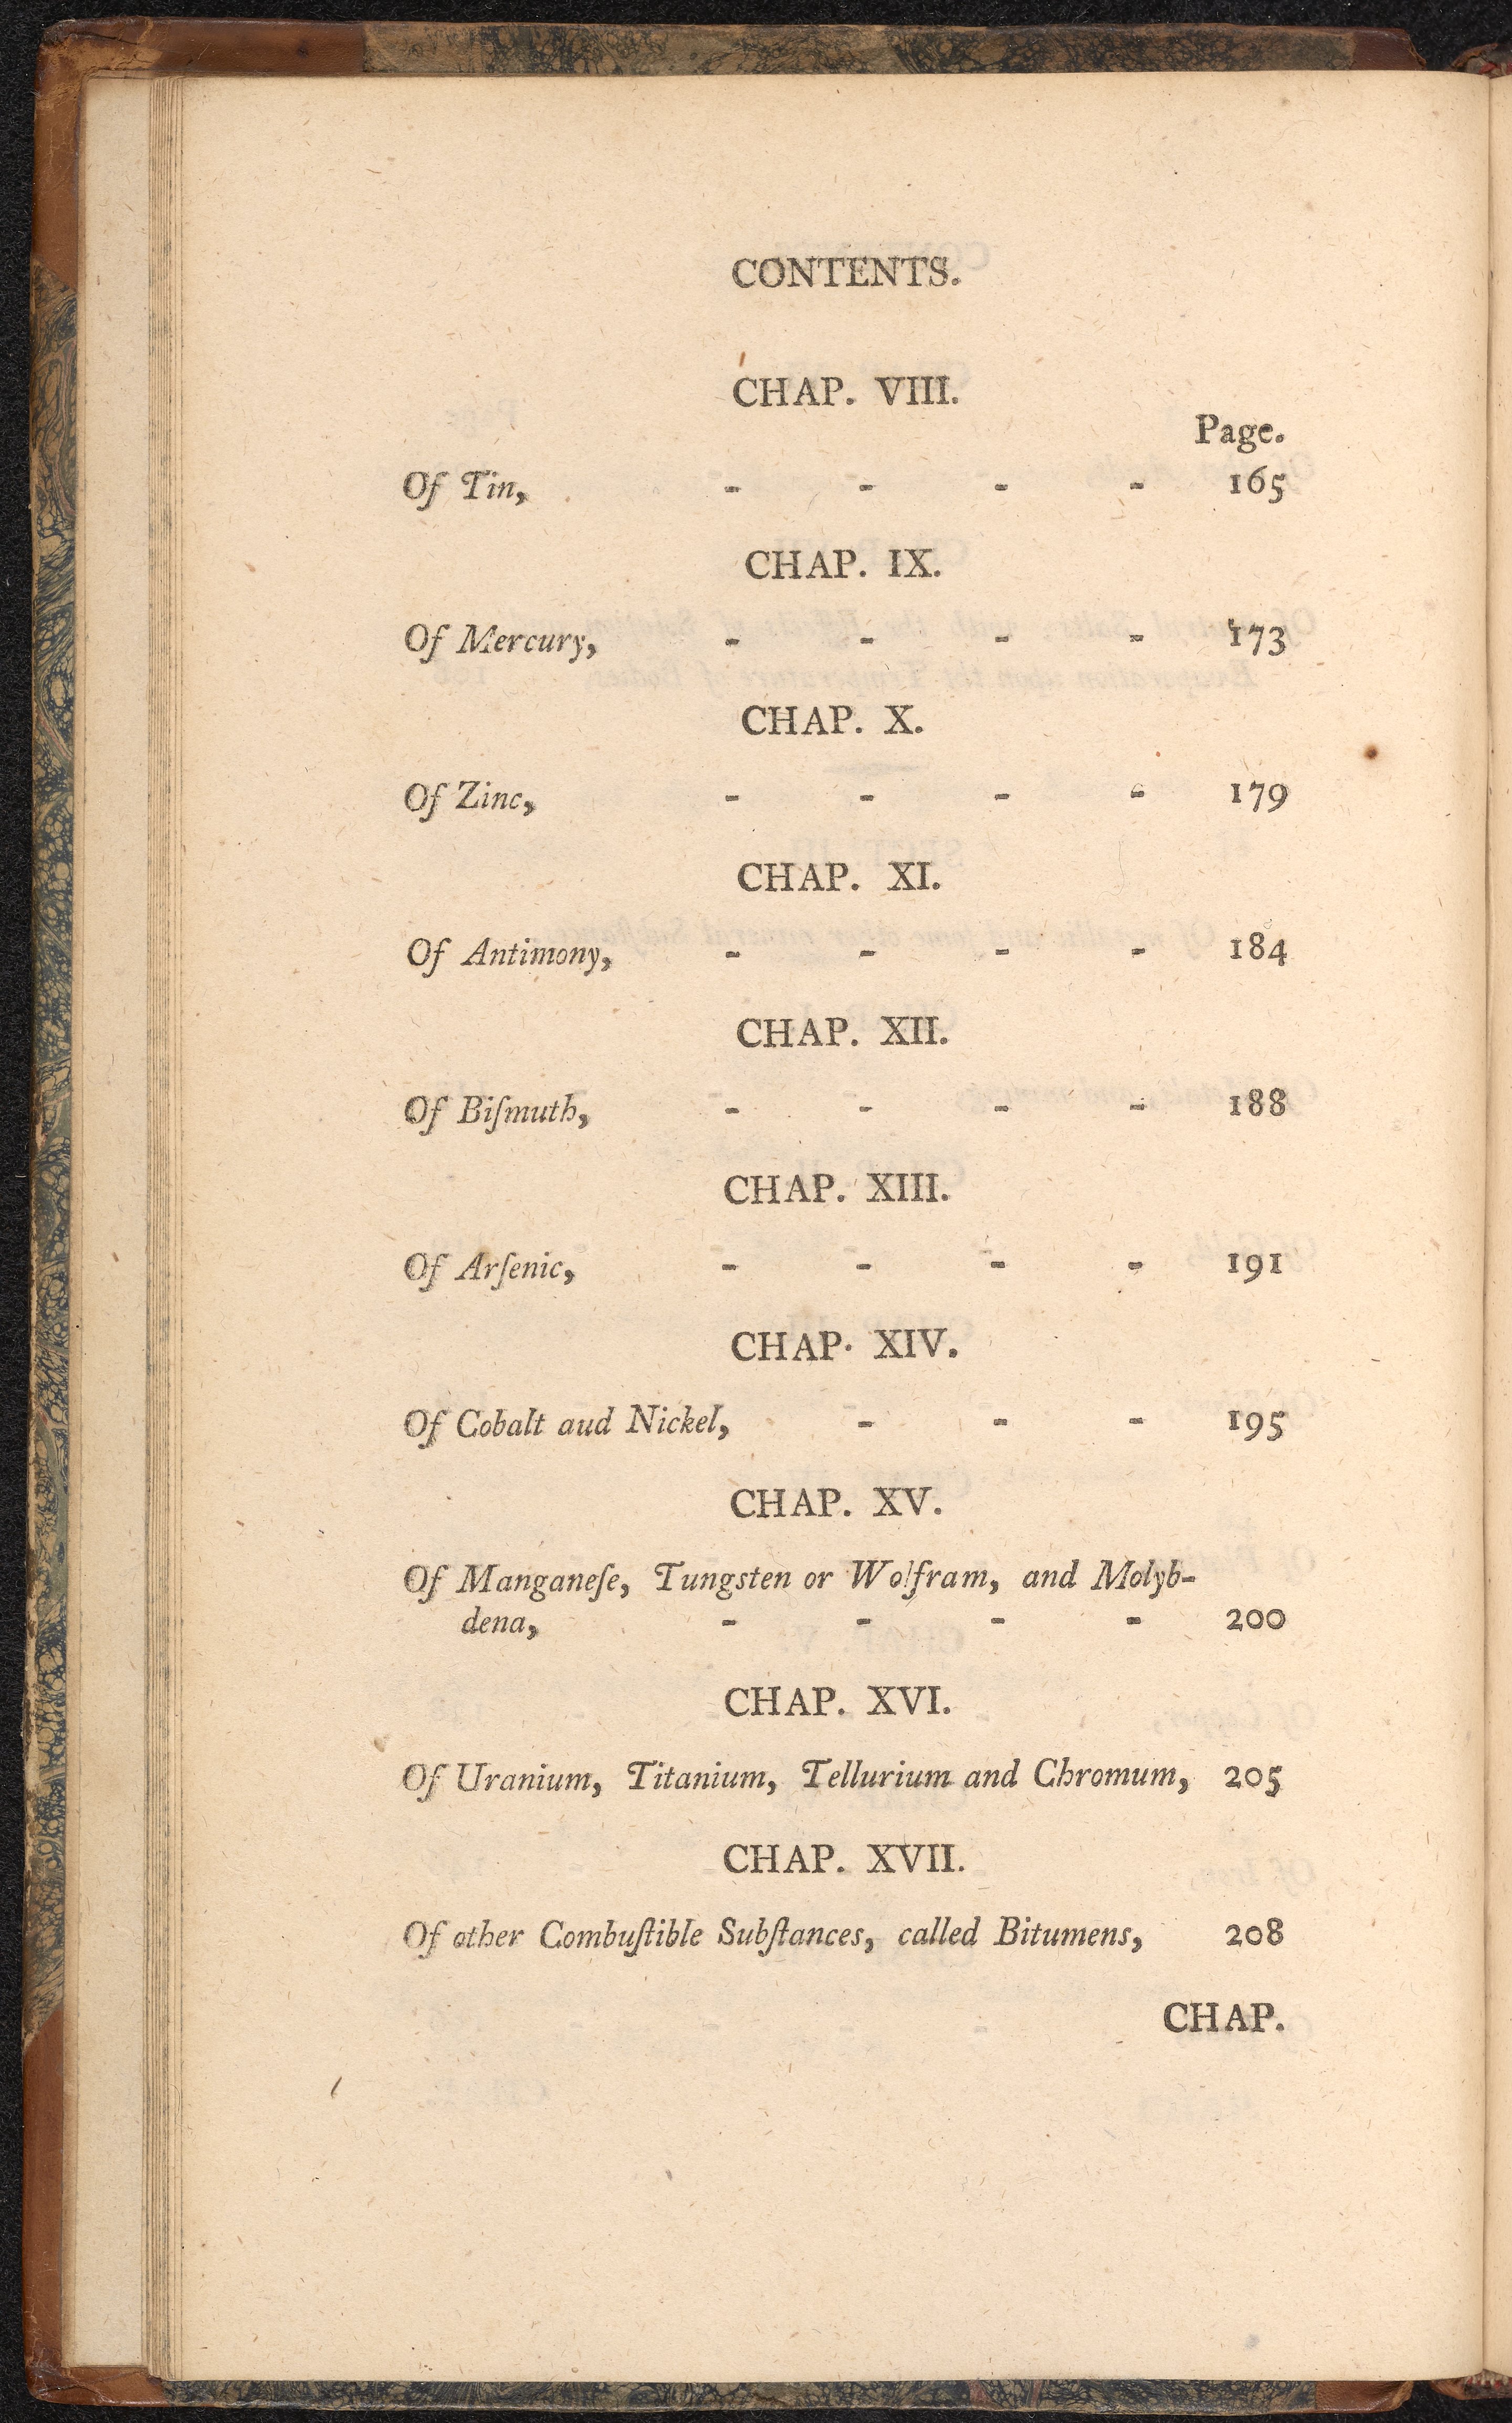 CONTENTS.
CHAP. VIII.
Page.
Of Tin, - - - - 165
CHAP. IX.
Of Mercury, - - - - 173
CHAP. X.
Of Zinc, - - - - 179
CHAP. XI.
Of Antimony, - - - - 184
CHAP. XII.
Of Biſmuth, - - - - 188
CHAP. XIII.
Of Arſenic, - - - - 191
CHAP. XIV.
Of Cobalt aud Nickel, - - - 195
CHAP. XV.
Of Manganeſe, Tungsten or Wolfram, and Molyb-
dena, - - - - 200
CHAP. XVI.
Of Uranium, Titanium, Tellurium and Chromum, 205
CHAP. XVII.
Of other Combuſtible Subſtances, called Bitumens, 208
CHAP.